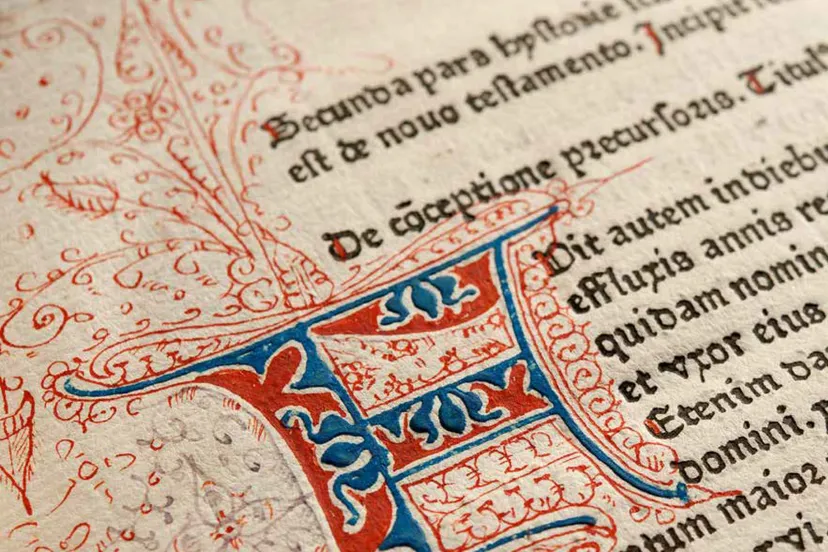 Secunda pars hystorie
est de nouo testamento. Incipit
De cōceptione precursoris. Titul
F
Vit autem indiebu
effluxis annis re
quidam nomin
et vxor eius
Etenim da
domini. p
tum maior
vi